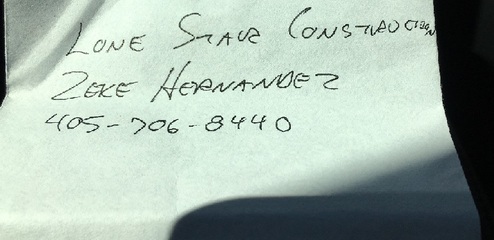 LONE STAR CONSTRUCTION
ZEKE HERNANDEZ
405-706-8440